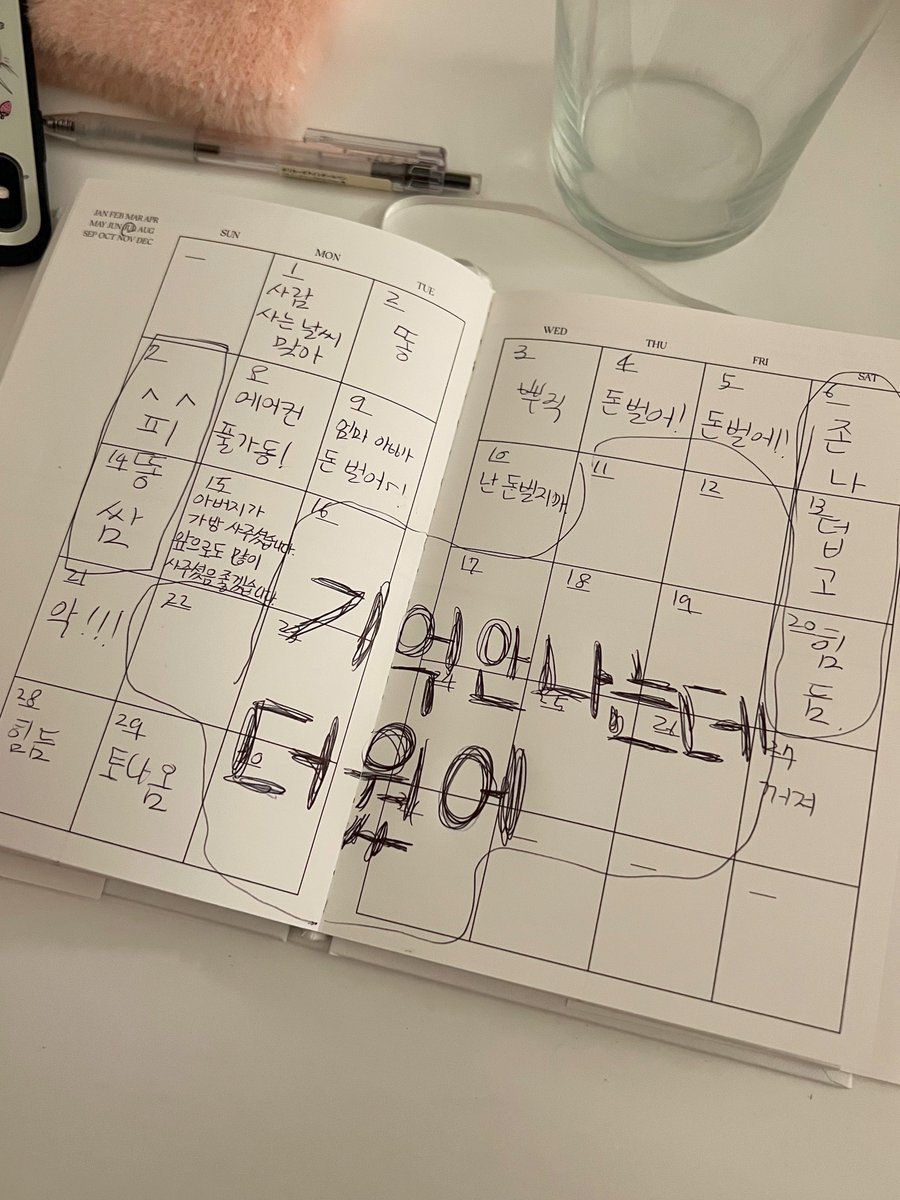 JAN FEB MAR APR
MAY JUN JUL AUG
SEP OCT NOV DEC
SUN
MON
TUE
WED
THU
FRI
SAT
1
사람
사는 날씨
맞아
2
똥
3
뿌직
4
돈벌어!
5
돈벌어!!
6
존
나
7
ㅅㅅ
피
8
에어컨
풀가동!
9
엄마 아빠
돈 벌어
10
난 돈벌지까
11
12
13
덥
고
14
똥
쌈
15
아버지가
가방 사주셨습니다
앞으로도 많이
사주셨음 좋겠습니다
16
17
18
19
20
힘
듬
21
악!!!
22
기억안나는데
더웠어
27
꺼져
28
힘듬
29
토나옴